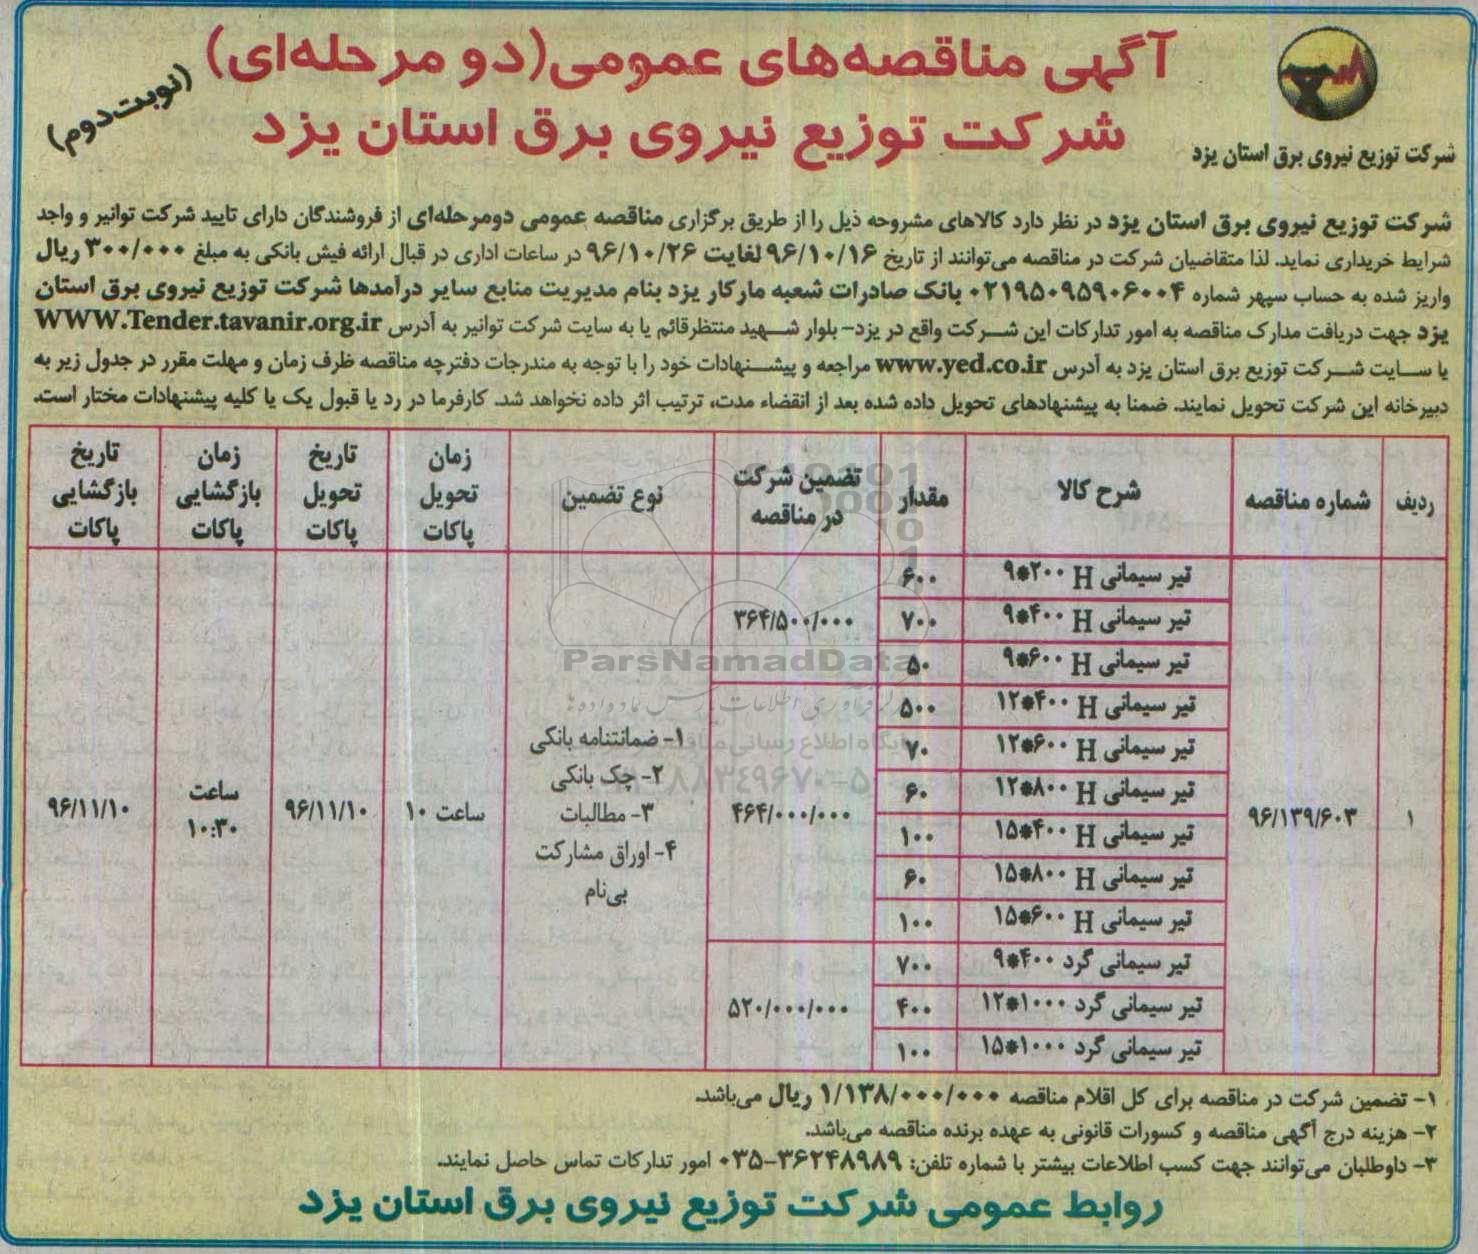 آگهی مناقصه‌های عمومی(دو مرحله‌ای)
شرکت توزیع نیروی برق استان یزد
(نوبت دوم)
شرکت توزیع نیروی برق استان یزد
شرکت توزیع نیروی برق استان یزد در نظر دارد کالاهای مشروحه ذیل را از طریق برگزاری مناقصه عمومی دومرحله‌ای از فروشندگان دارای تایید شرکت توانیر و واجد
شرایط خریداری نماید. لذا متقاضیان شرکت در مناقصه می‌توانند از تاریخ ۹۶/۱۰/۱۶ لغایت ۹۶/۱۰/۲۶ در ساعات اداری در قبال ارائه فیش بانکی به مبلغ ۳۰۰/۰۰۰ ریال
واریز شده به حساب سپهر شماره ۰۲۱۹۵۰۹۵۹۰۶۰۰۴ بانک صادرات شعبه مارکار یزد بنام مدیریت منابع سایر درآمدها شرکت توزیع نیروی برق استان
یزد جهت دریافت مدارک مناقصه به امور تدارکات این شرکت واقع در یزد- بلوار شهید منتظرقائم یا به سایت شرکت توانیر به آدرس WWW.Tender.tavanir.org.ir
یا سایت شرکت توزیع برق استان یزد به آدرس www.yed.co.ir مراجعه و پیشنهادات خود را با توجه به مندرجات دفترچه مناقصه ظرف زمان و مهلت مقرر در جدول زیر به
دبیرخانه این شرکت تحویل نمایند. ضمنا به پیشنهادهای تحویل داده شده بعد از انقضاء مدت، ترتیب اثر داده نخواهد شد. کارفرما در رد یا قبول یک یا کلیه پیشنهادات مختار است.
ردیف
شماره مناقصه
شرح کالا
مقدار
تضمین شرکت
در مناقصه
نوع تضمین
زمان
تحویل
پاکات
تاریخ
تحویل
پاکات
زمان
بازگشایی
پاکات
تاریخ
بازگشایی
پاکات
۱
۹۶/۱۳۹/۶۰۳
تیر سیمانی H ۹*۲۰۰
۶۰۰
تیر سیمانی H ۹*۴۰۰
۷۰۰
تیر سیمانی H ۹*۶۰۰
۵۰
۳۶۴/۵۰۰/۰۰۰
تیر سیمانی H ۱۲*۴۰۰
۵۰۰
تیر سیمانی H ۱۲*۶۰۰
۷۰
تیر سیمانی H ۱۲*۸۰۰
۶۰
تیر سیمانی H ۱۵*۴۰۰
۱۰۰
تیر سیمانی H ۱۵*۸۰۰
۶۰
تیر سیمانی H ۱۵*۶۰۰
۱۰۰
۴۶۴/۰۰۰/۰۰۰
تیر سیمانی گرد ۹*۴۰۰
۷۰۰
تیر سیمانی گرد ۱۲*۱۰۰۰
۴۰۰
تیر سیمانی گرد ۱۵*۱۰۰۰
۱۰۰
۵۲۰/۰۰۰/۰۰۰
۱- ضمانتنامه بانکی
۲- چک بانکی
۳- مطالبات
۴- اوراق مشارکت
بی‌نام
ساعت ۱۰
۹۶/۱۱/۱۰
ساعت
۱۰:۳۰
۹۶/۱۱/۱۰
ParsNamadData
۱- تضمین شرکت در مناقصه برای کل اقلام مناقصه ۱/۱۳۸/۰۰۰/۰۰۰ ریال می‌باشد.
۲- هزینه درج آگهی مناقصه و کسورات قانونی به عهده برنده مناقصه می‌باشد.
۳- داوطلبان می‌توانند جهت کسب اطلاعات بیشتر با شماره تلفن: ۳۶۲۴۸۹۸۹-۰۳۵ امور تدارکات تماس حاصل نمایند.
روابط عمومی شرکت توزیع نیروی برق استان یزد